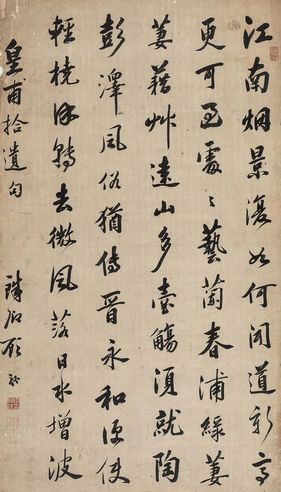 江南烟景復如何聞道新亭
更可過處〻藝蘭春浦綠萋
萋藉艸遠山多壺觴須就陶
彭澤風俗猶傳晉永和便使
輕橈徐轉去微風落日水增波
皇甫拾遺句